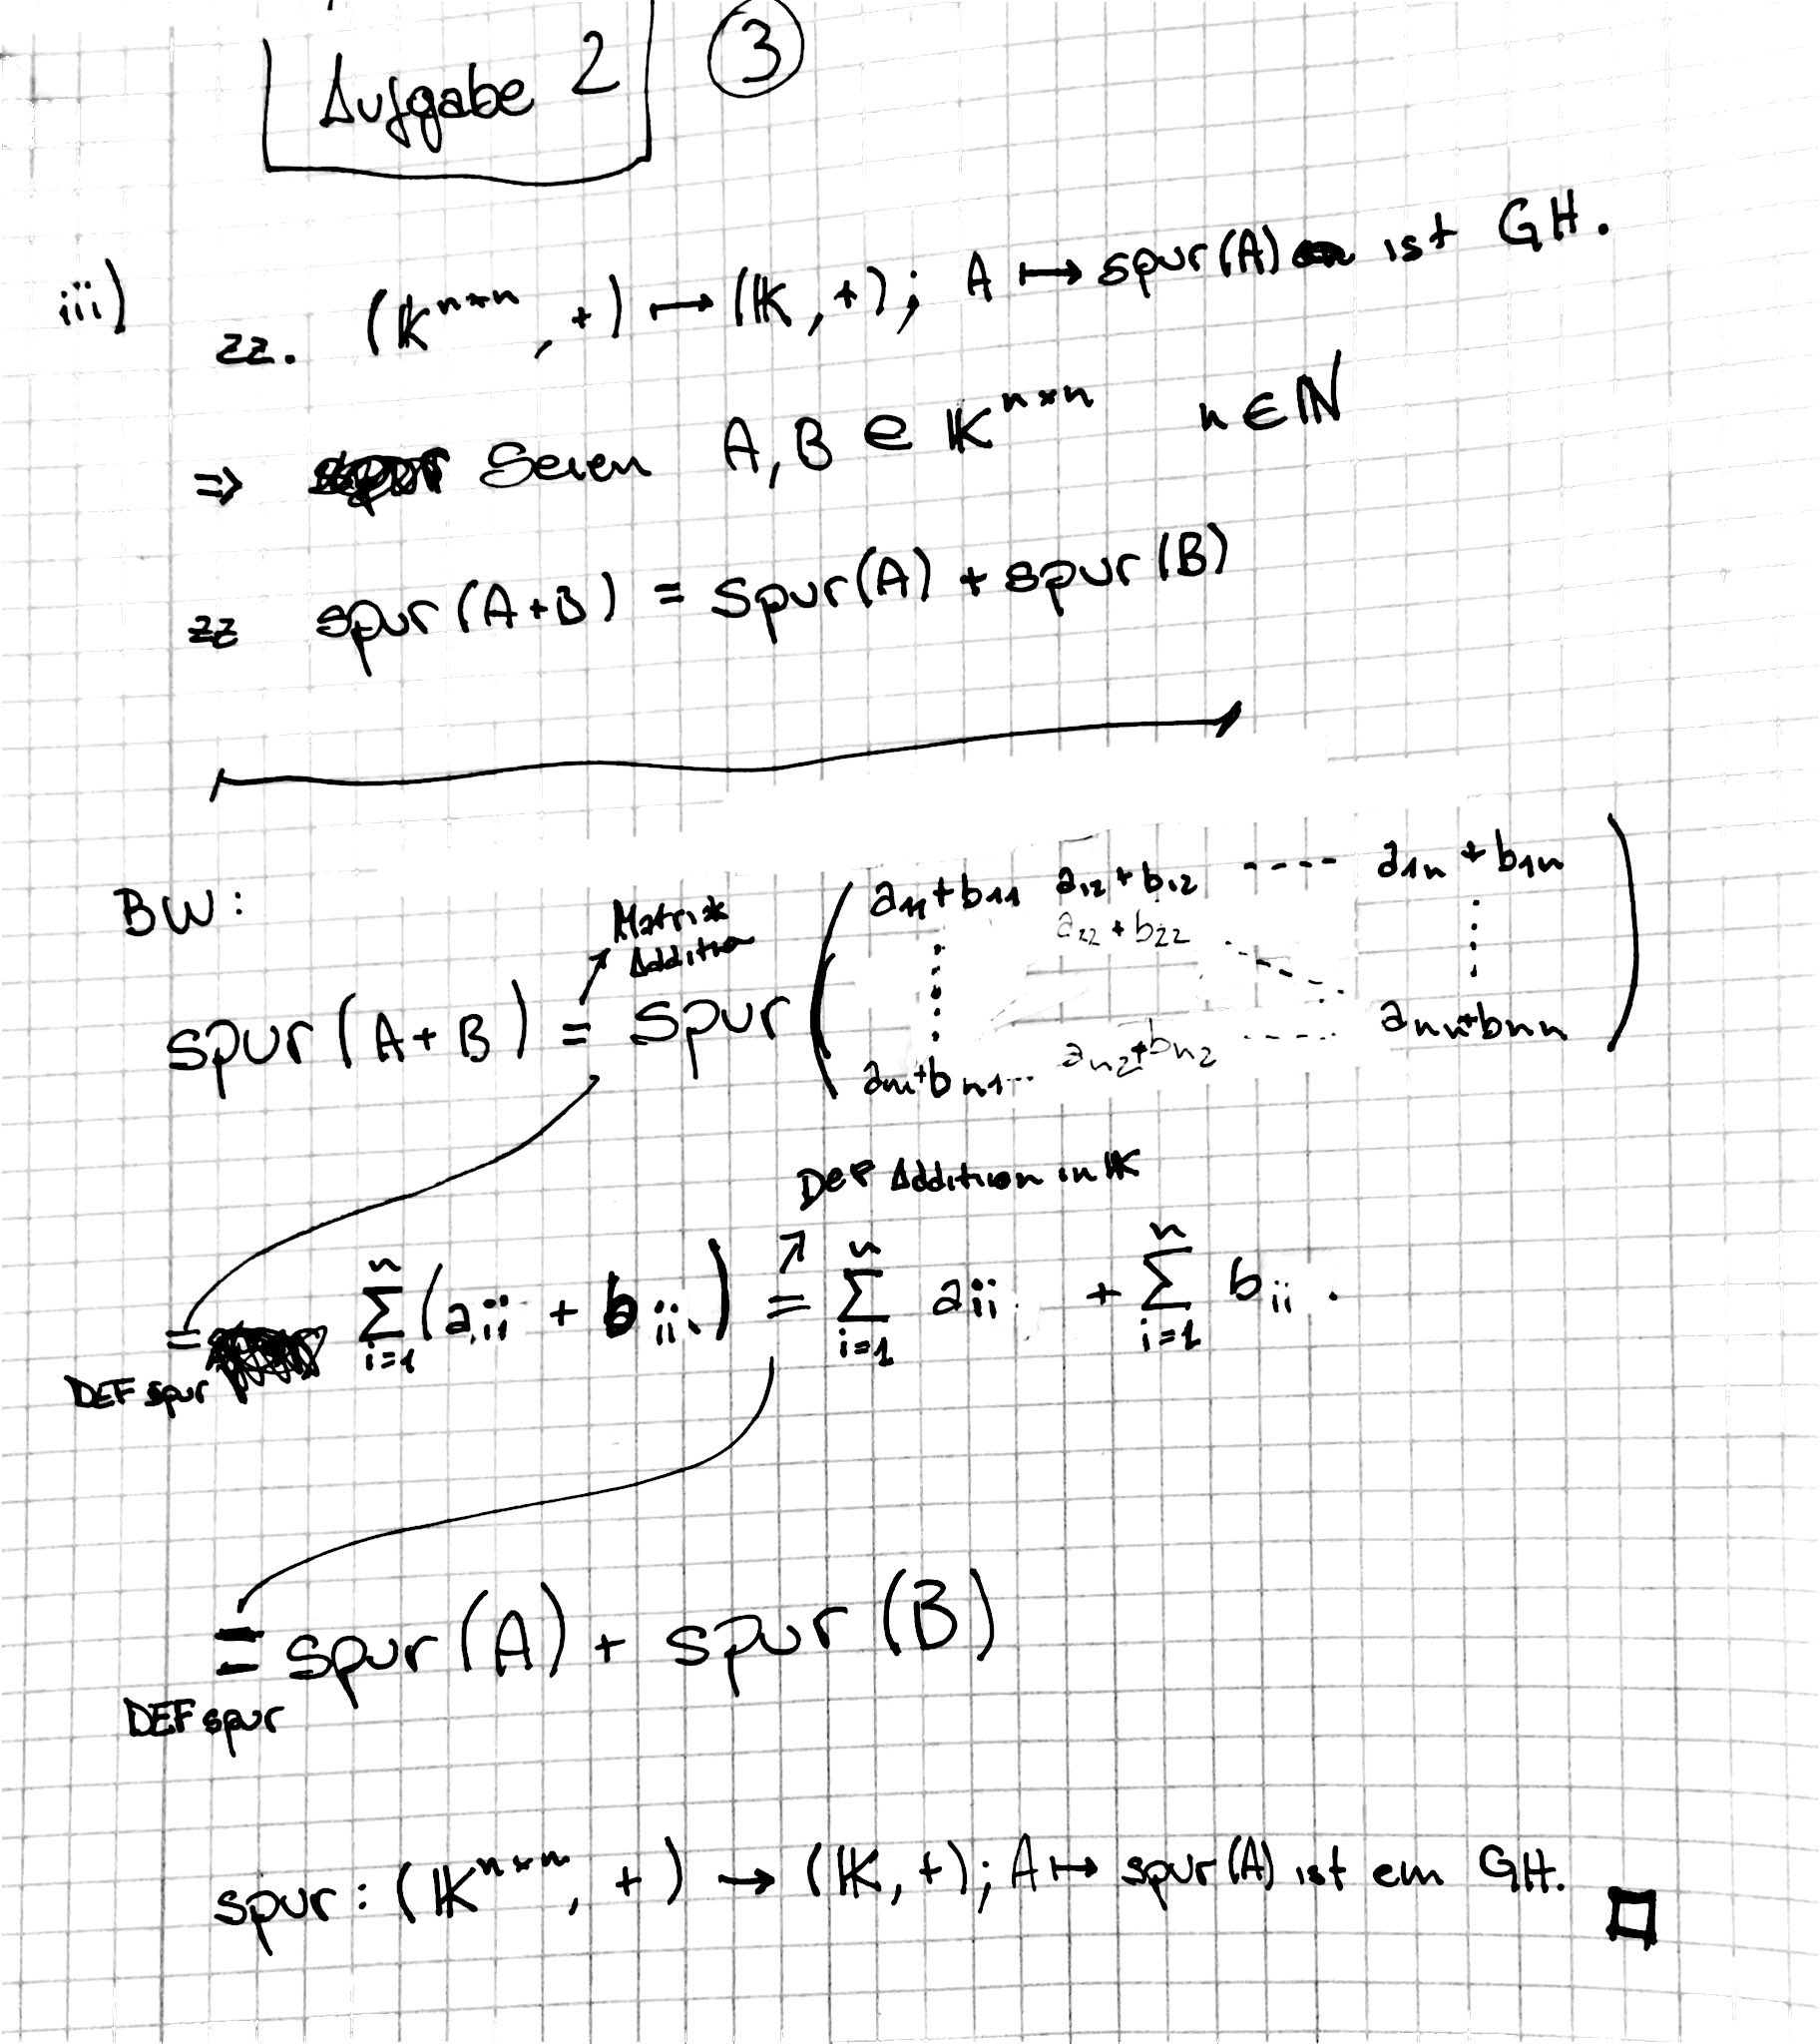 Aufgabe 2 ③
iii) zz. (K^{n×n}, +) ↦ (K, +); A ↦ spur(A) ist GH.
⇒ Seien A, B ∈ K^{n×n} n ∈ ℕ
zz spur(A+B) = spur(A) + spur(B)
BW:
Matrix
Addition
a_{11}+b_{11} a_{12}+b_{12} ---- a_{1n}+b_{1n}
a_{22}+b_{22}
spur(A+B) = spur
a_{n1}+b_{n1}... a_{n2}+b_{n2} ---- a_{nn}+b_{nn}
DEF Addition in K
= ∑_{i=1}^{n} (a_{ii} + b_{ii}) = ∑_{i=1}^{n} a_{ii} + ∑_{i=1}^{n} b_{ii}.
DEF spur
= spur(A) + spur(B)
DEF spur
spur: (K^{n×n}, +) → (K, +); A ↦ spur(A) ist ein GH. □